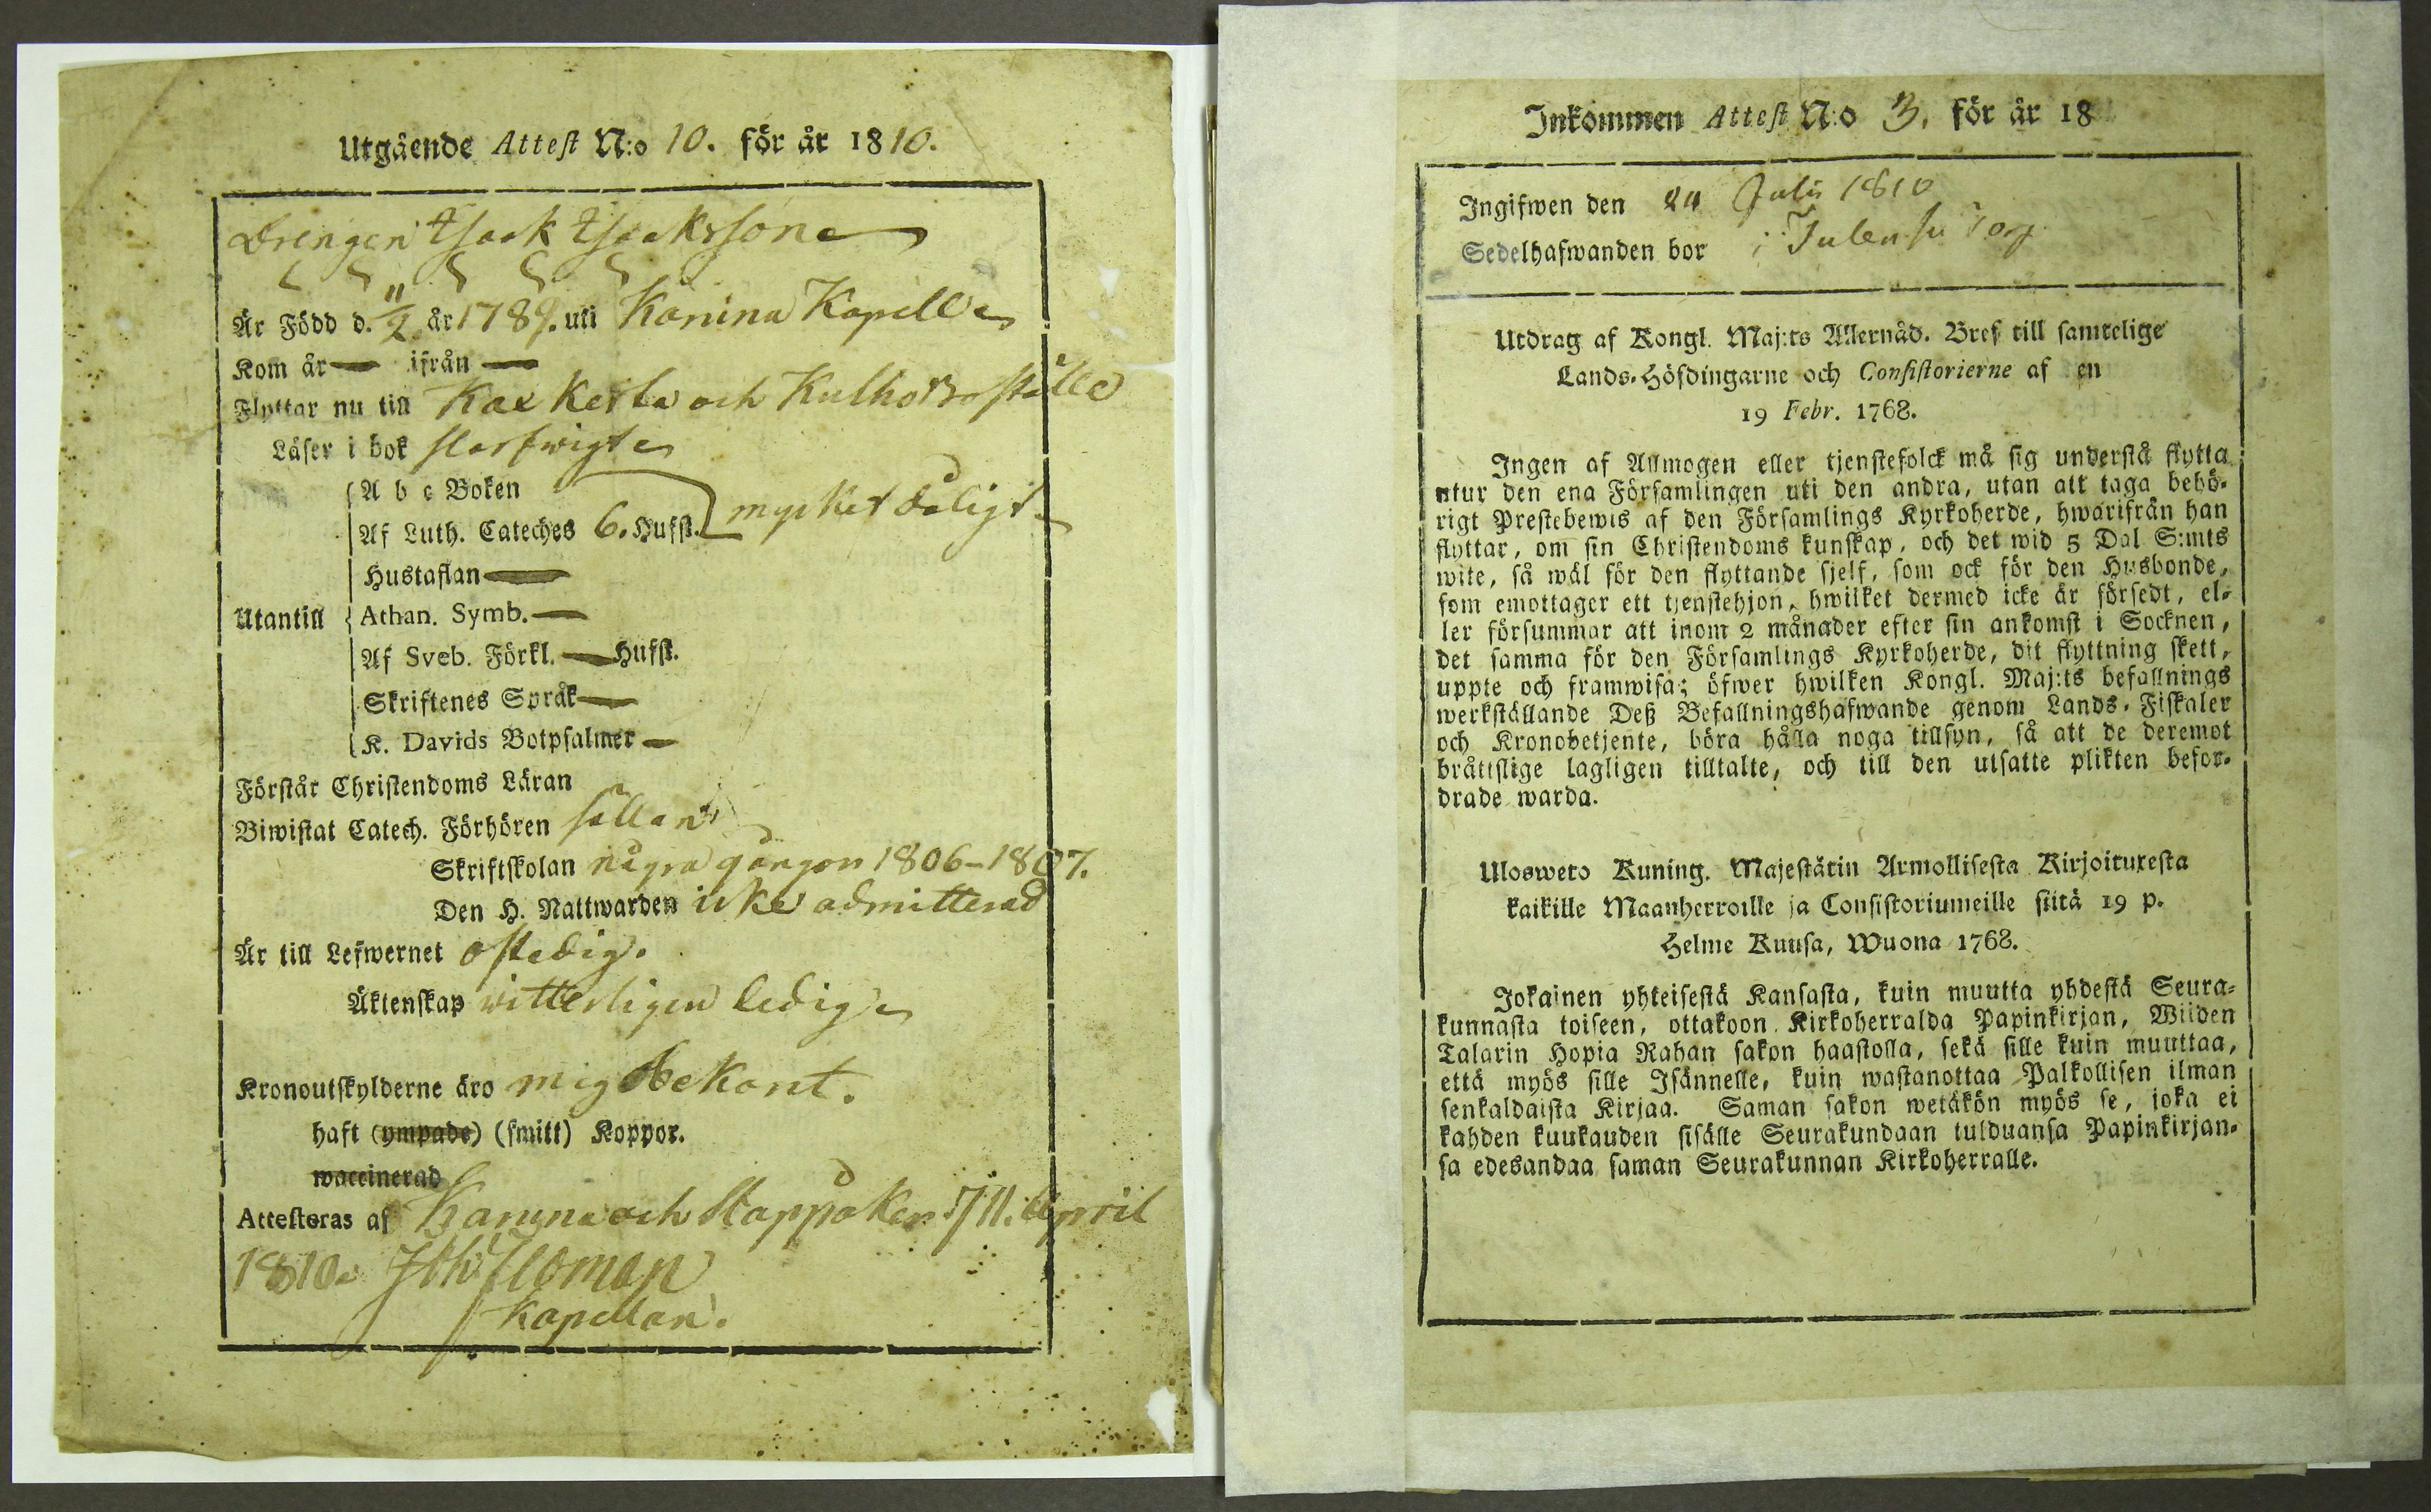 Utgående Attest N:o 10. för år 1810.
Drengen Isaak Isaaksson
Är Född d. 11/2 år 1789. uti Karuna Kapell
Kom år — ifrån —
Flyttar nu till Kaxkerta och Kulho Boställe
Läser i bok
A b c Boken
Af Luth. Cateches 6. Hufst. mycket dåligt
Hustaflan —
Utantill Athan. Symb. —
Af Sveb. Förkl. — Hufst.
Skriftenes Språk —
K. Davids Botpsalmer —
Förstår Christendoms Läran
Biwistat Catech. Förhören sällan
Skriftskolan några gånger 1806-1807.
Den H. Nattwarden icke admitterad
Är till Lefwernet ostadig.
Äktenskap witterligen ledig
Kronoutskylderne äro mig obekant.
haft (ympade) (smitt) Koppor.
waccinerad
Attesteras af Karuna och Stappaken d 11. April
1810.
Kapellan.
Inkommen Attest N:o 3. för år 18
Ingifwen den 24 Julii 1810
Sedelhafwanden bor i
Utdrag af Kongl. Maj:ts Allernåd. Bref till samtelige
Lands-Höfdingarne och Consistorierne af en
19 Febr. 1768.
Ingen af Allmogen eller tjenstefolck må sig understå flytta
utur den ena Församlingen uti den andra, utan att taga behö-
rigt Prestebewis af den Församlings Kyrkoherde, hwarifrån han
flyttar, om sin Christendoms kunskap, och det wid 5 Dal S:mts
wite, så wäl för den flyttande sjelf, som ock för den Husbonde,
som emottager ett tjenstehjon, hwilket dermed icke är försedt, el-
ler försummar att inom 2 månader efter sin ankomst i Socknen,
det samma för den Församlings Kyrkoherde, dit flyttning skett,
uppte och framwisa; öfwer hwilken Kongl. Maj:ts befallnings
werkställande Deß Befallningshafwande genom Lands-Fiskaler
och Kronobetjente, böra hålla noga tillsyn, så att de deremot
bråttslige lagligen tilltalte, och till den utsatte plikten befor-
drade warda.
Ulosweto Kuning. Majestätin Armollisesta Kirjoituxesta
kaikille Maanherroille ja Consistoriumeille siitä 19 p.
Helme Kuusa, Wuona 1768.
Jokainen yhteisestä Kansasta, kuin muutta yhdestä Seura-
kunnasta toiseen, ottakoon Kirkoherralda Papinkirjan, Wiiden
Talarin Hopia Rahan sakon haastolla, sekä sille kuin muuttaa,
että myös sille Isännelle, kuin wastanottaa Palkollisen ilman
senkaldaista Kirjaa. Saman sakon wetäkön myös se, joka ei
kahden kuukauden sisälle Seurakundaan tulduansa Papinkirjan-
sa edesandaa saman Seurakunnan Kirkoherralle.